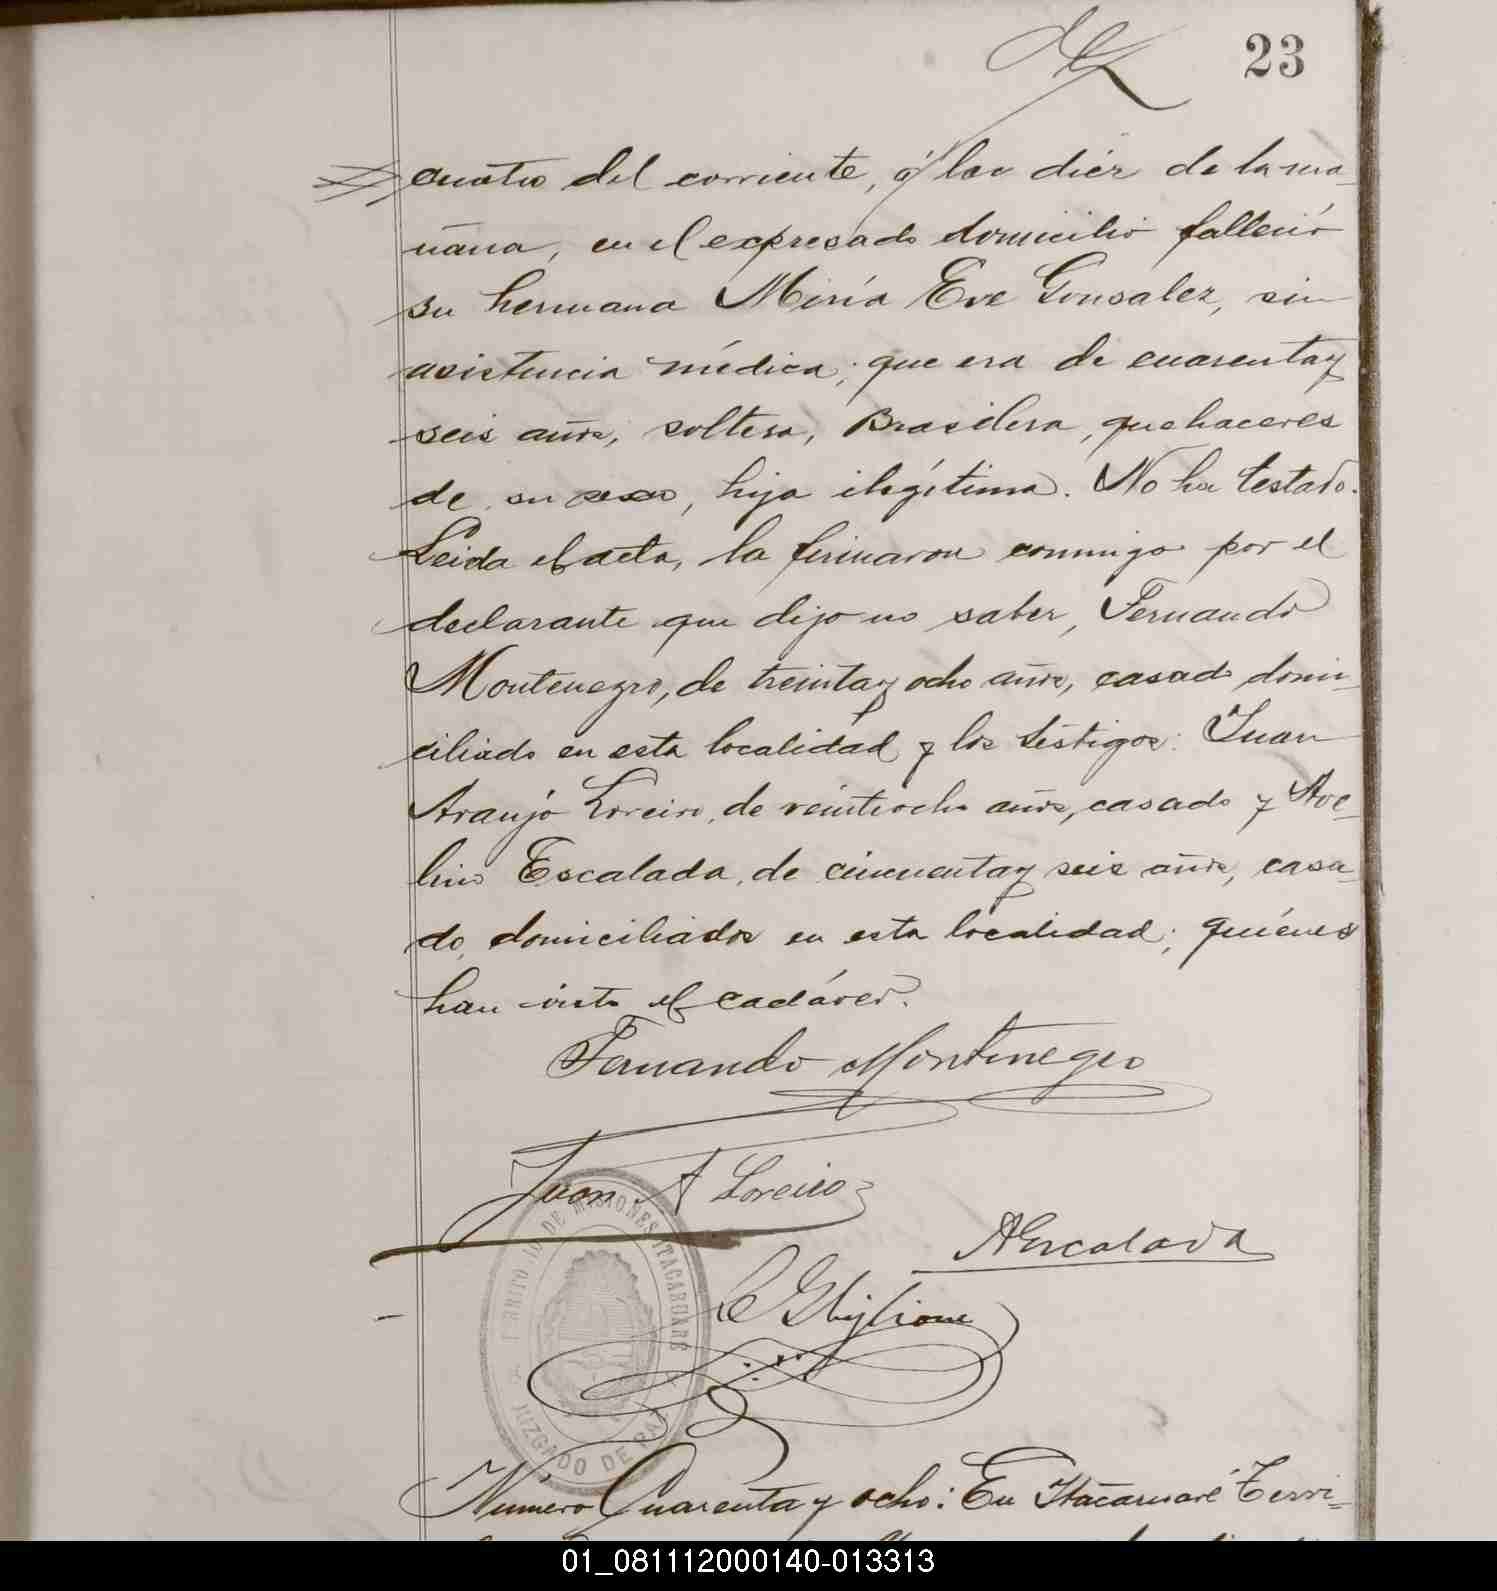 23
cuatro del corriente, á las diéz de la ma-
ñana, en el expresado domicilio falleció
su hermana María Eve Gonsalez, sin
asistencia médica; que era de cuarenta y
seis años, soltera, Brasilera, quehaceres
de su sexo, hija ilegítima. No ha testado.
Leida el acta, la firmaron conmigo por el
declarante que dijo no saber, Fernando
Montenegro, de treinta y ocho años, casado domi-
ciliado en esta localidad y los testigos: Juan
Araujo Loreiro, de veintiocho años, casado y Ave-
lino Escalada, de cincuenta y seis años, casa-
do, domiciliados en esta localidad; quiénes
han visto el cadáver.
Fernando Montenegro
Juan A Loreiro
AEscalada
Ghiglione
TERRITORIO DE MISIONES ITACARUARÉ
JUZGADO DE PAZ
Número Cuarenta y ocho: En Itacaruaré Terri-
01_081112000140-013313